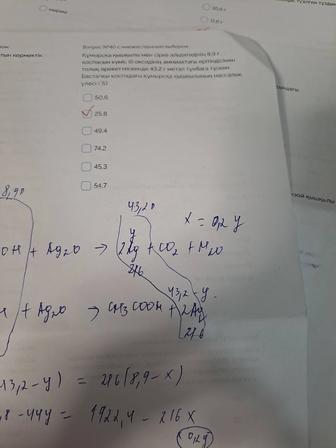 10,6 г
11,6 г
Вопрос №40 с множественным выбором
Құмырсқа қышқылы мен сірке альдегидінің 8,9 г
қоспасын күміс (I) оксидінің аммиактағы ертіндісімен
толық әрекеттескенде 43.2 г метал тұнбаға түскен
Бастапқы қоспадағы құмырсқа қышқылының массалық
үлесі ( %)
50.6
25.8
49.4
74.2
45.3
54.7
8,9г
43,2г
x = 0,2 y
y
OH + Ag2O → 2Ag + CO2 + H2O
216
43,2 - y
+ Ag2O → CH3COOH + 2Ag
216
43,2 - y) = 216(8,9 - x)
,8 - 44y = 1922,4 - 216 x
0,2y